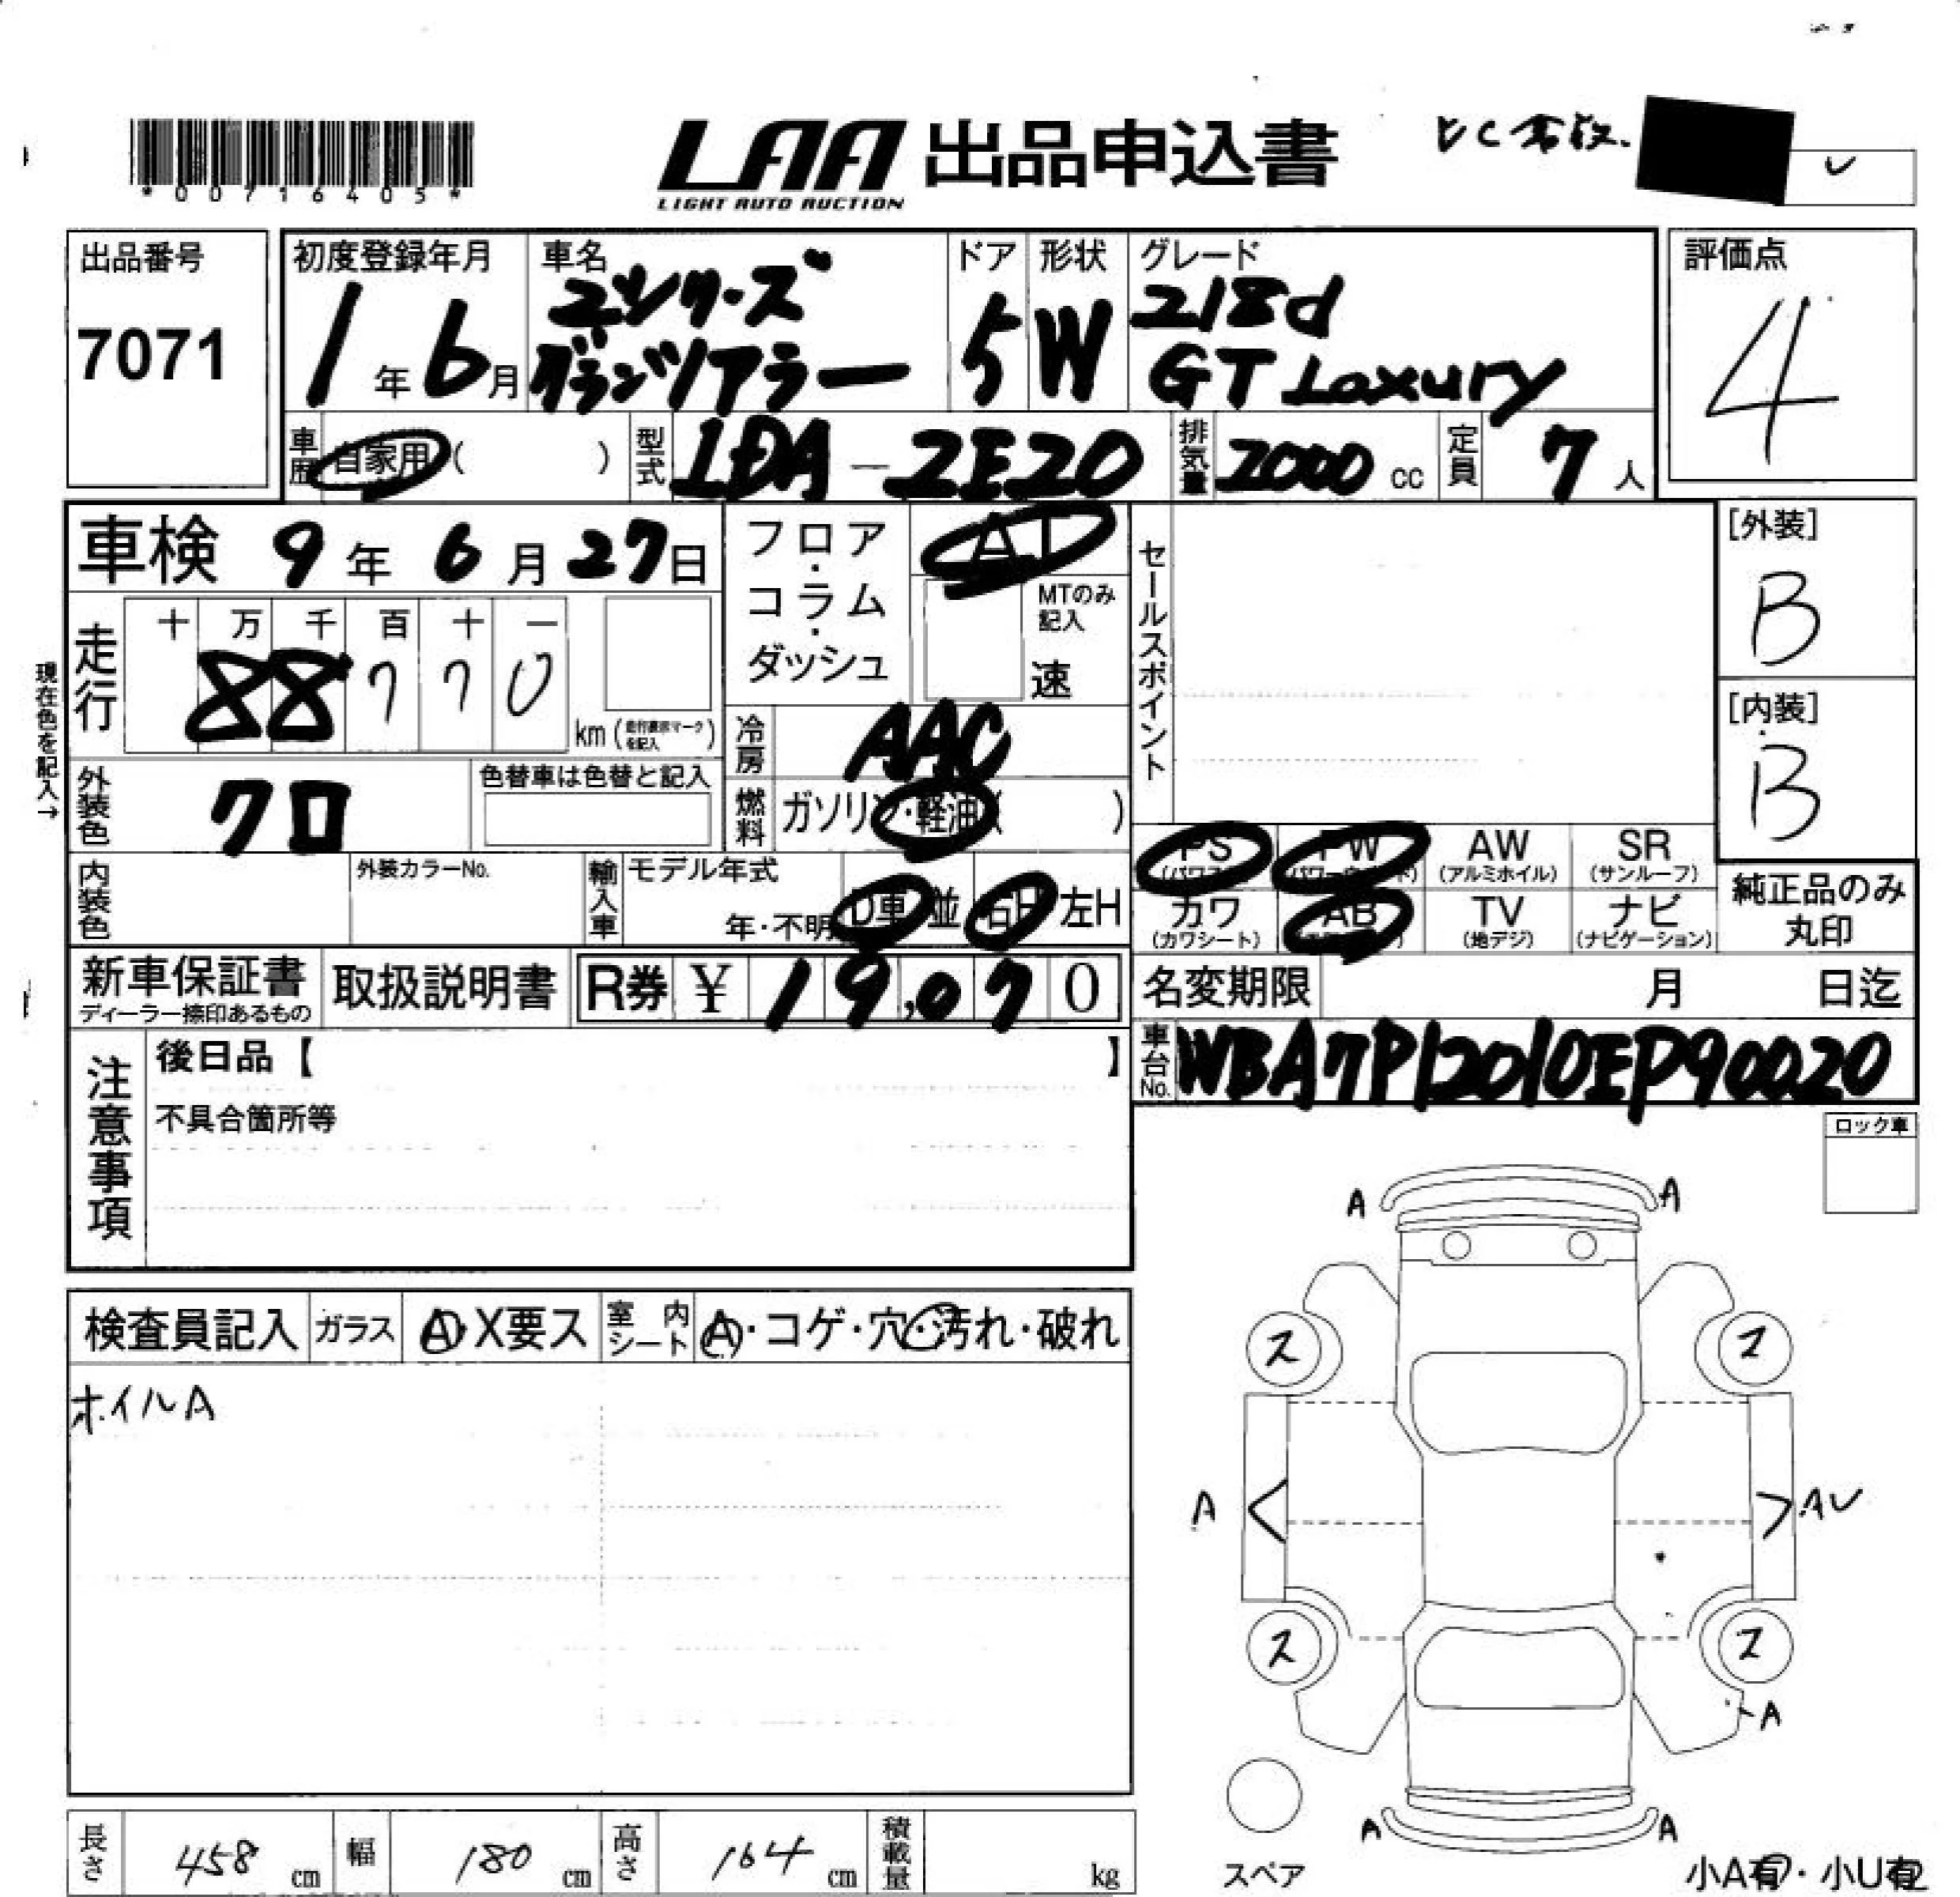 *00716405*
LAA 出品申込書
LIGHT AUTO AUCTION
出品番号
7071
初度登録年月
1年6月
車名
2シリーズ
グランツアラー
ドア
5
形状
W
グレード
218d
GT Luxury
評価点
4
車歴 自家用( )
型式 LDA-2E20
排気量 2000 cc
定員 7 人
車検 9年6月27日
フロア・コラム・ダッシュ
AT
MTのみ記入
速
セールスポイント
[外装]
B
[内装]
B
現在色を記入→
走行
十 万 千 百 十 一
88770
km(走行表示マークを記入)
冷房 AAC
外装色 クロ
色替車は色替と記入
燃料 ガソリン・軽油( )
PS(パワステ) PW AW(アルミホイル) SR(サンルーフ)
カワ(カワシート) AB TV(地デジ) ナビ(ナビゲーション)
純正品のみ丸印
内装色
外装カラーNo.
輸入車 モデル年式
年・不明 D車 並 右H 左H
新車保証書
ディーラー捺印あるもの
取扱説明書
R券 ¥ 19,070
名変期限 月 日迄
車台No. WBA7P12010EP90020
注意事項
後日品【 】
不具合箇所等
ロック車
検査員記入
ガラス A・X要ス
室内シート A・コゲ・穴・汚れ・破れ
ホイルA
A A
ス ス
A AU
ス ス
A
A A
スペア
小A有・小U有
長さ 458 cm
幅 180 cm
高さ 164 cm
積載量 kg